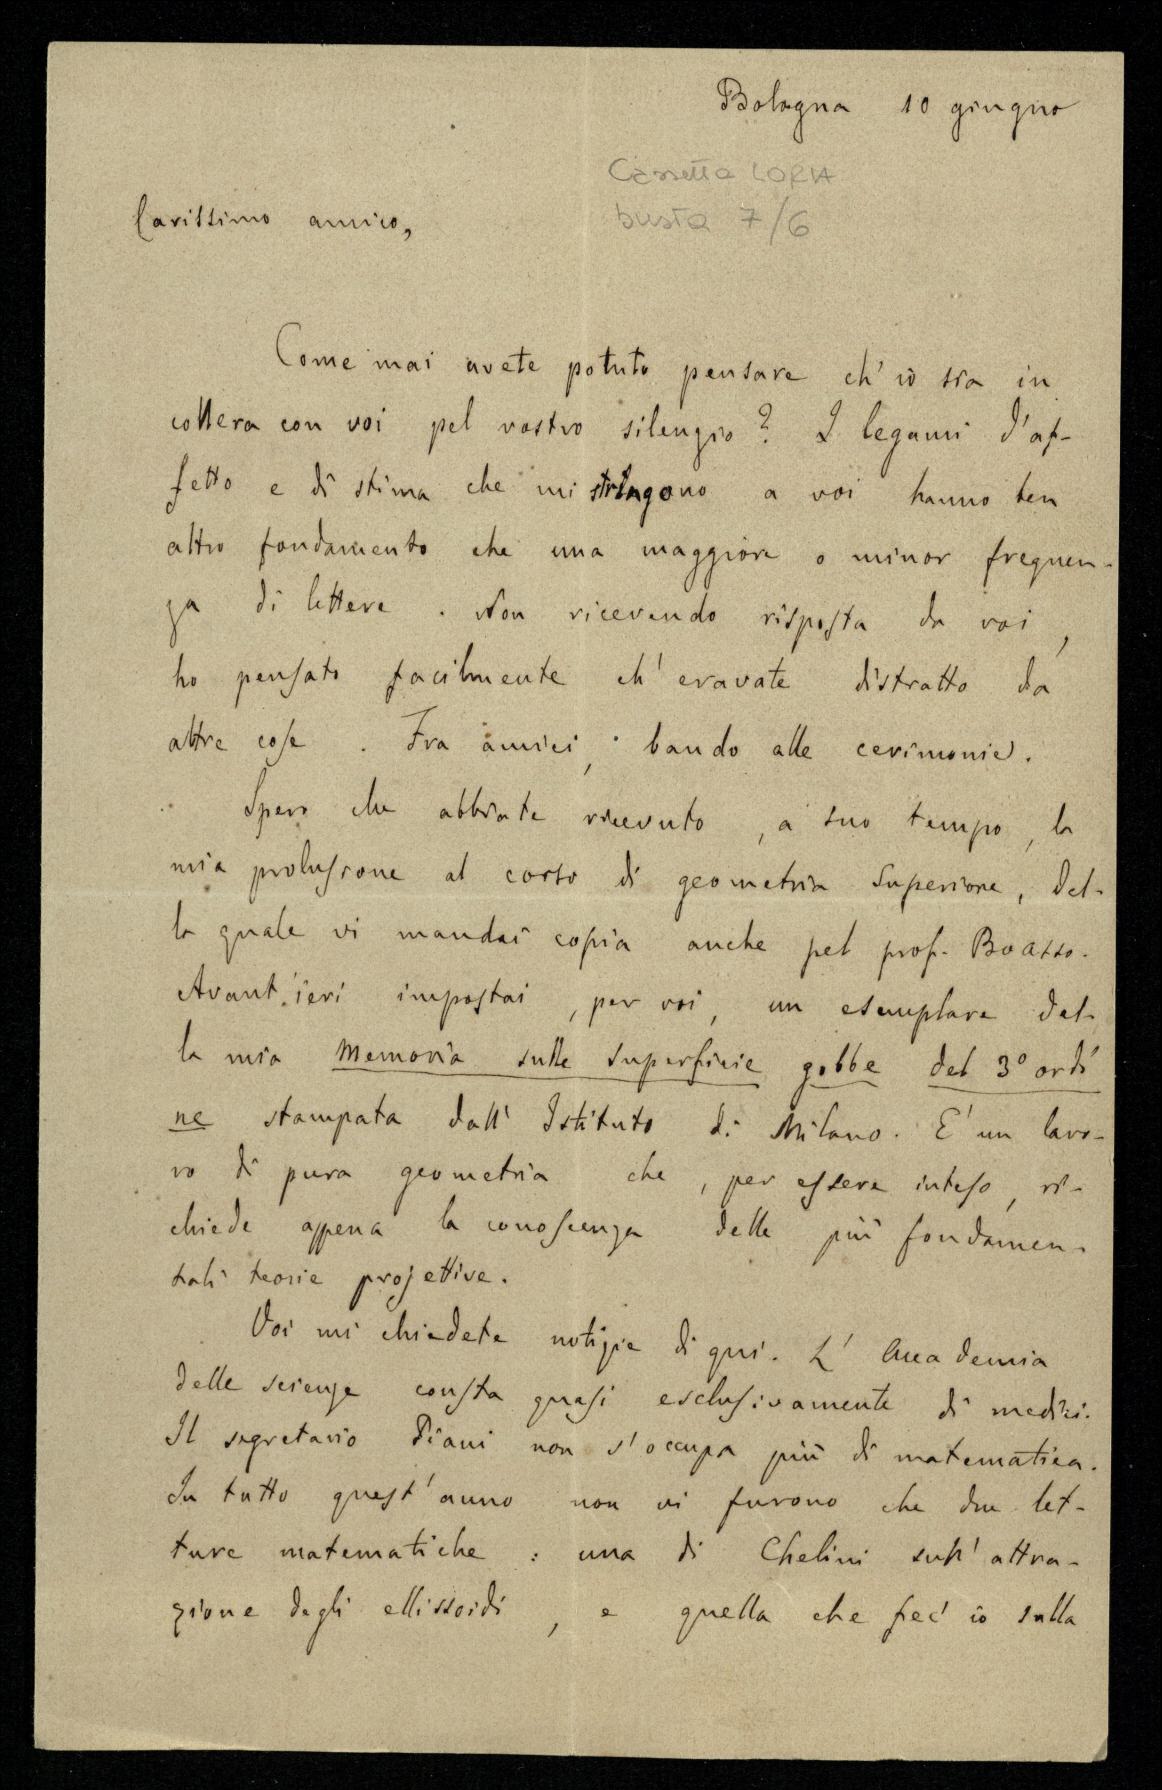 Bologna 10 giugno
Cassetta LORIA
busta 7/6
Carissimo amico,
Come mai avete potuto pensare ch'io sia in
collera con voi pel vostro silenzio? I legami d'af-
fetto e di stima che mi stringono a voi hanno ben
altro fondamento che una maggiore o minor frequen-
za di lettere. Non ricevendo risposta da voi,
ho pensato facilmente ch'eravate distratto da
altre cose. Fra amici, bando alle cerimonie.
Spero che abbiate ricevuto, a suo tempo, la
mia prolusione al corso di geometria superiore, del-
la quale vi mandai copia anche pel prof. Boasso.
Avant'ieri impostai, per voi, un esemplare del-
la mia Memoria sulle superficie gobbe del 3° ordi
ne stampata dall'Istituto di Milano. E' un lavo-
ro di pura geometria che, per essere inteso, ri-
chiede appena la conoscenza delle più fondamen-
tali teorie projettive.
Voi mi chiedete notizie di qui. L'Accademia
delle scienze consta quasi esclusivamente di medici.
Il segretario Piani non s'occupa più di matematica.
In tutto quest'anno non vi furono che due let-
ture matematiche: una di Chelini sull'attra-
zione degli ellissoidi, e quella che fec'io sulla